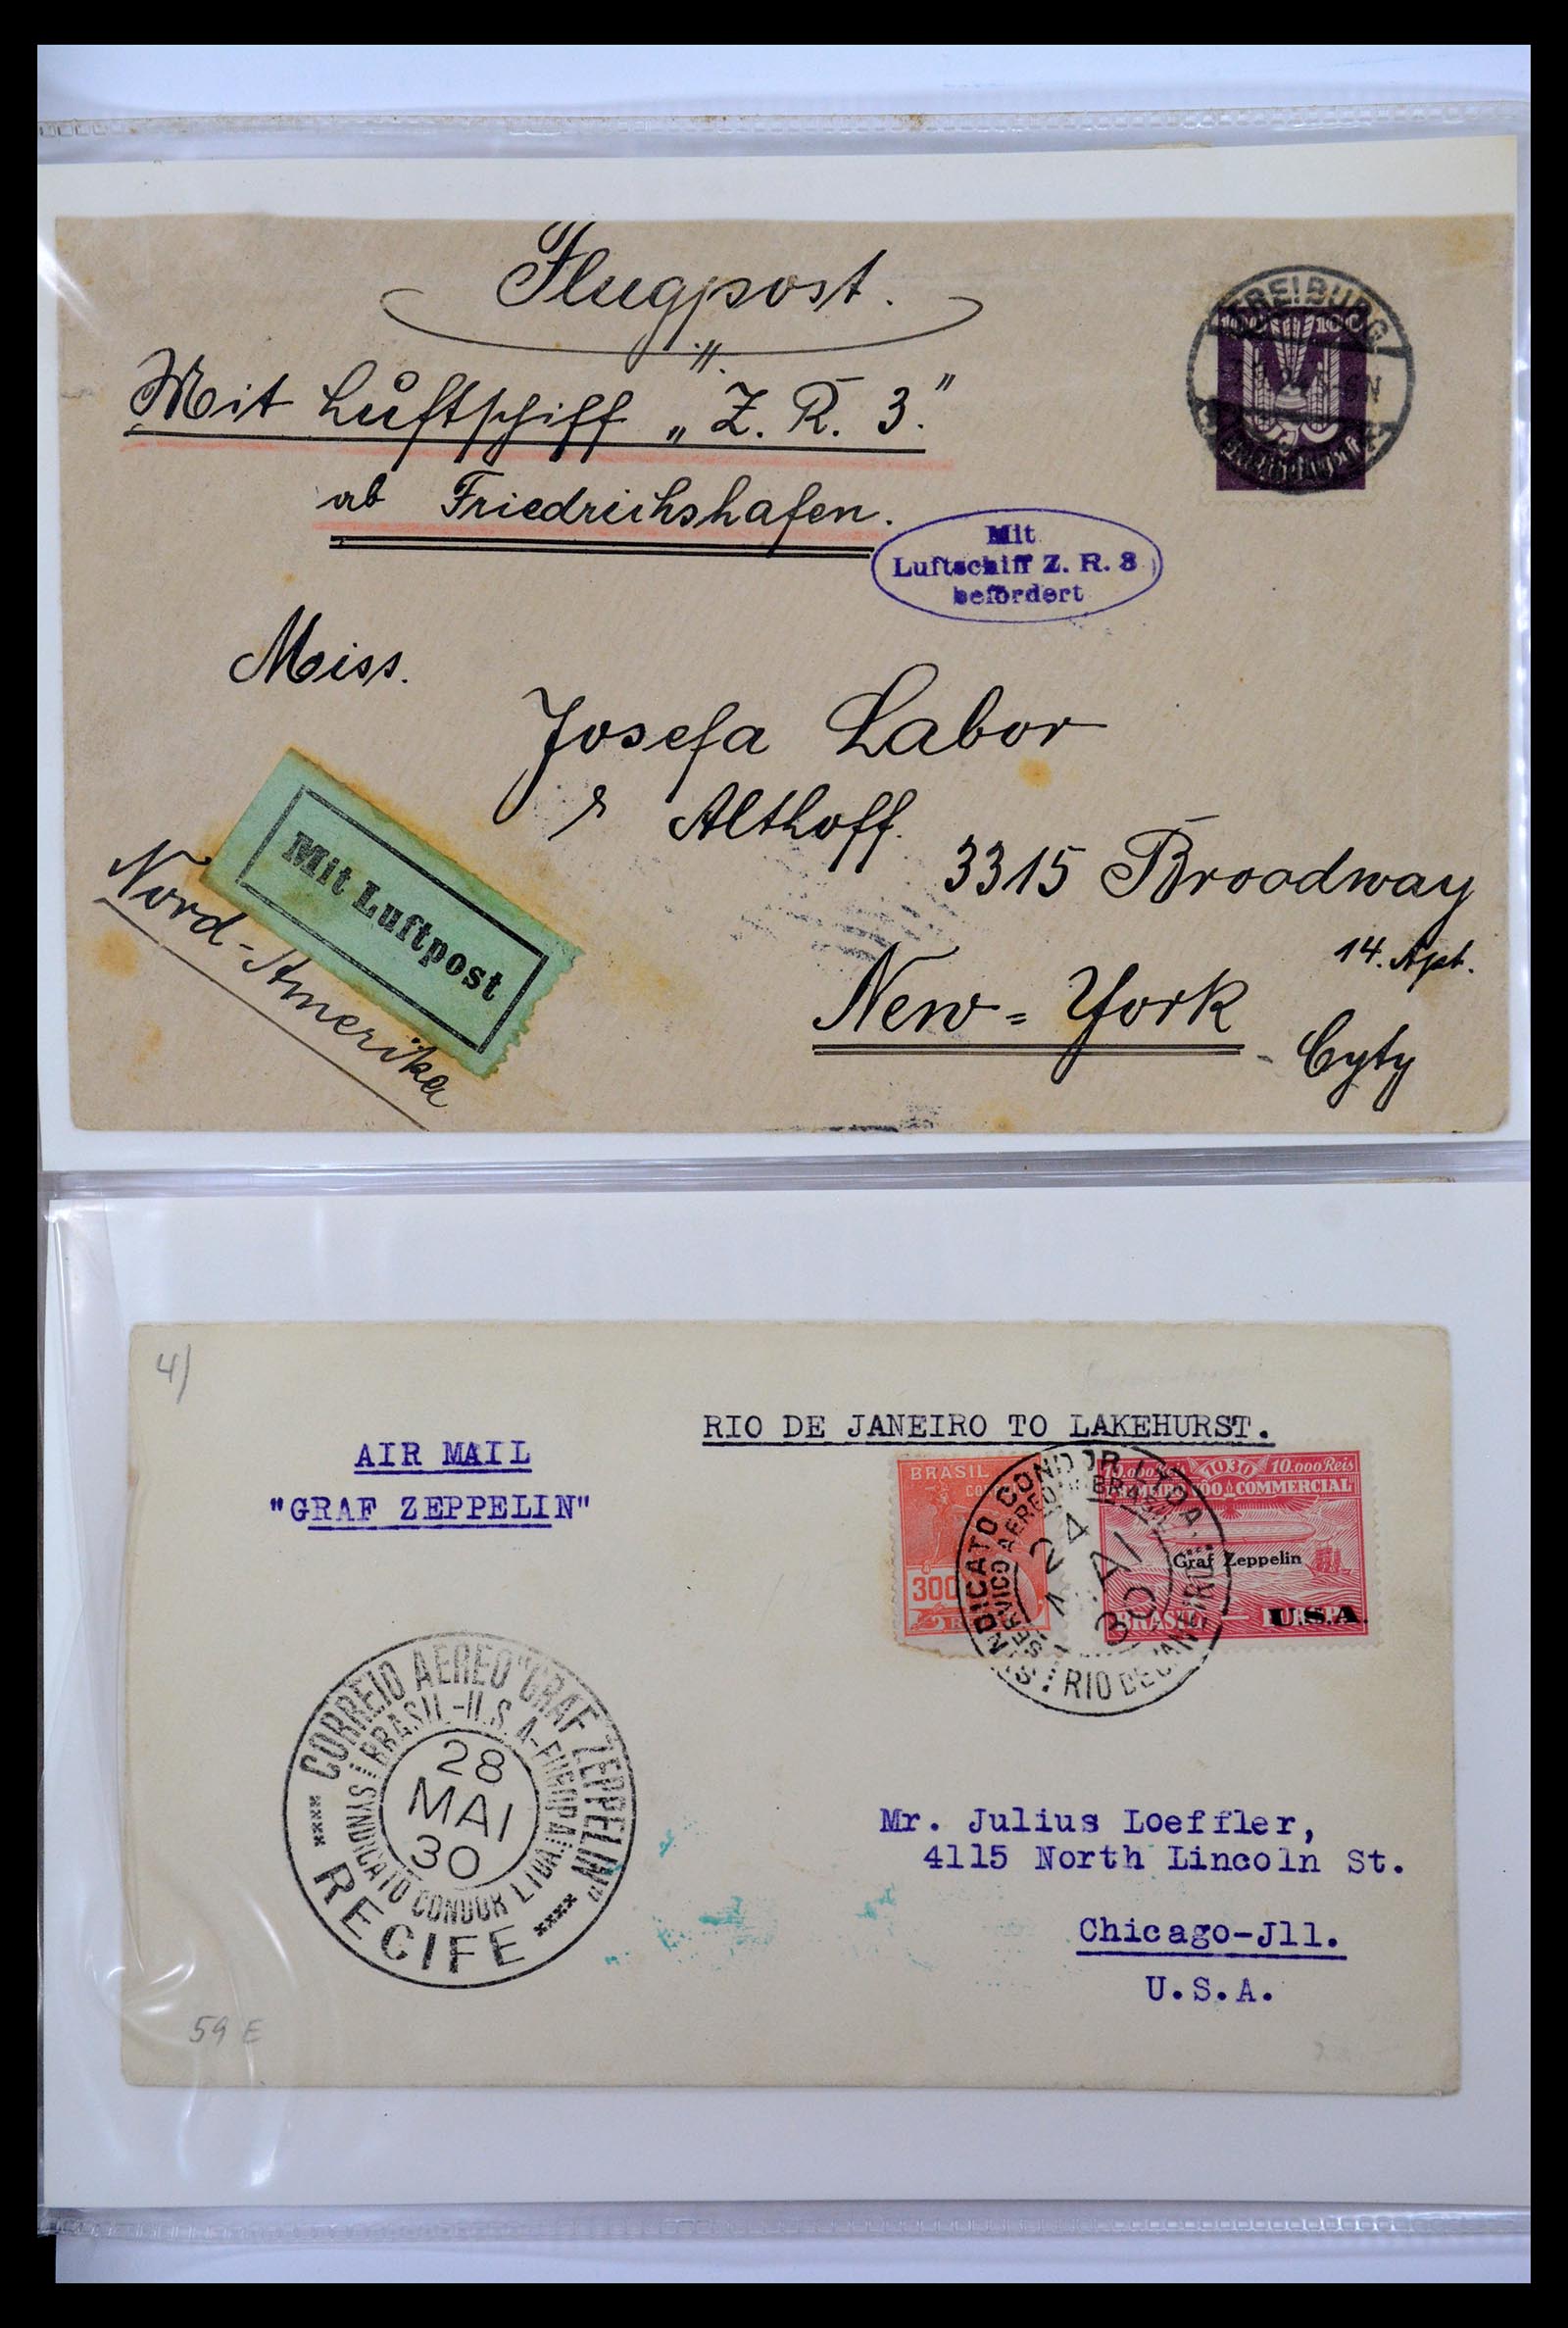 Flugpost.
Mit Luftschiff „Z. R. 3."
ab Friedrichshafen.
FREIBURG
100 100
Mit
Luftschiff Z. R. 3
befördert
Meiss.
Josefa Labor
Althoff.
3315 Broodway
14. Apt.
New=York - Cyty
Mit Luftpost
Nord-Amerika
4)
AIR MAIL
"GRAF ZEPPELIN"
RIO DE JANEIRO TO LAKEHURST.
BRASIL
300
SYNDICATO CONDOR LTDA.
SERVICO AEREO
24
MAI
30
RIO DE JANEIRO
1930 10.000 Reis
COMMERCIAL
Graf Zeppelin
BRASIL — EUROPA
U.S.A.
CORREIO AEREO "GRAF ZEPPELIN"
BRASIL-U.S.A-EUROPA
28
MAI
30
SYNDICATO CONDOR LTDA.
RECIFE
Mr. Julius Loeffler,
4115 North Lincoln St.
Chicago-Jll.
U.S.A.
59 E